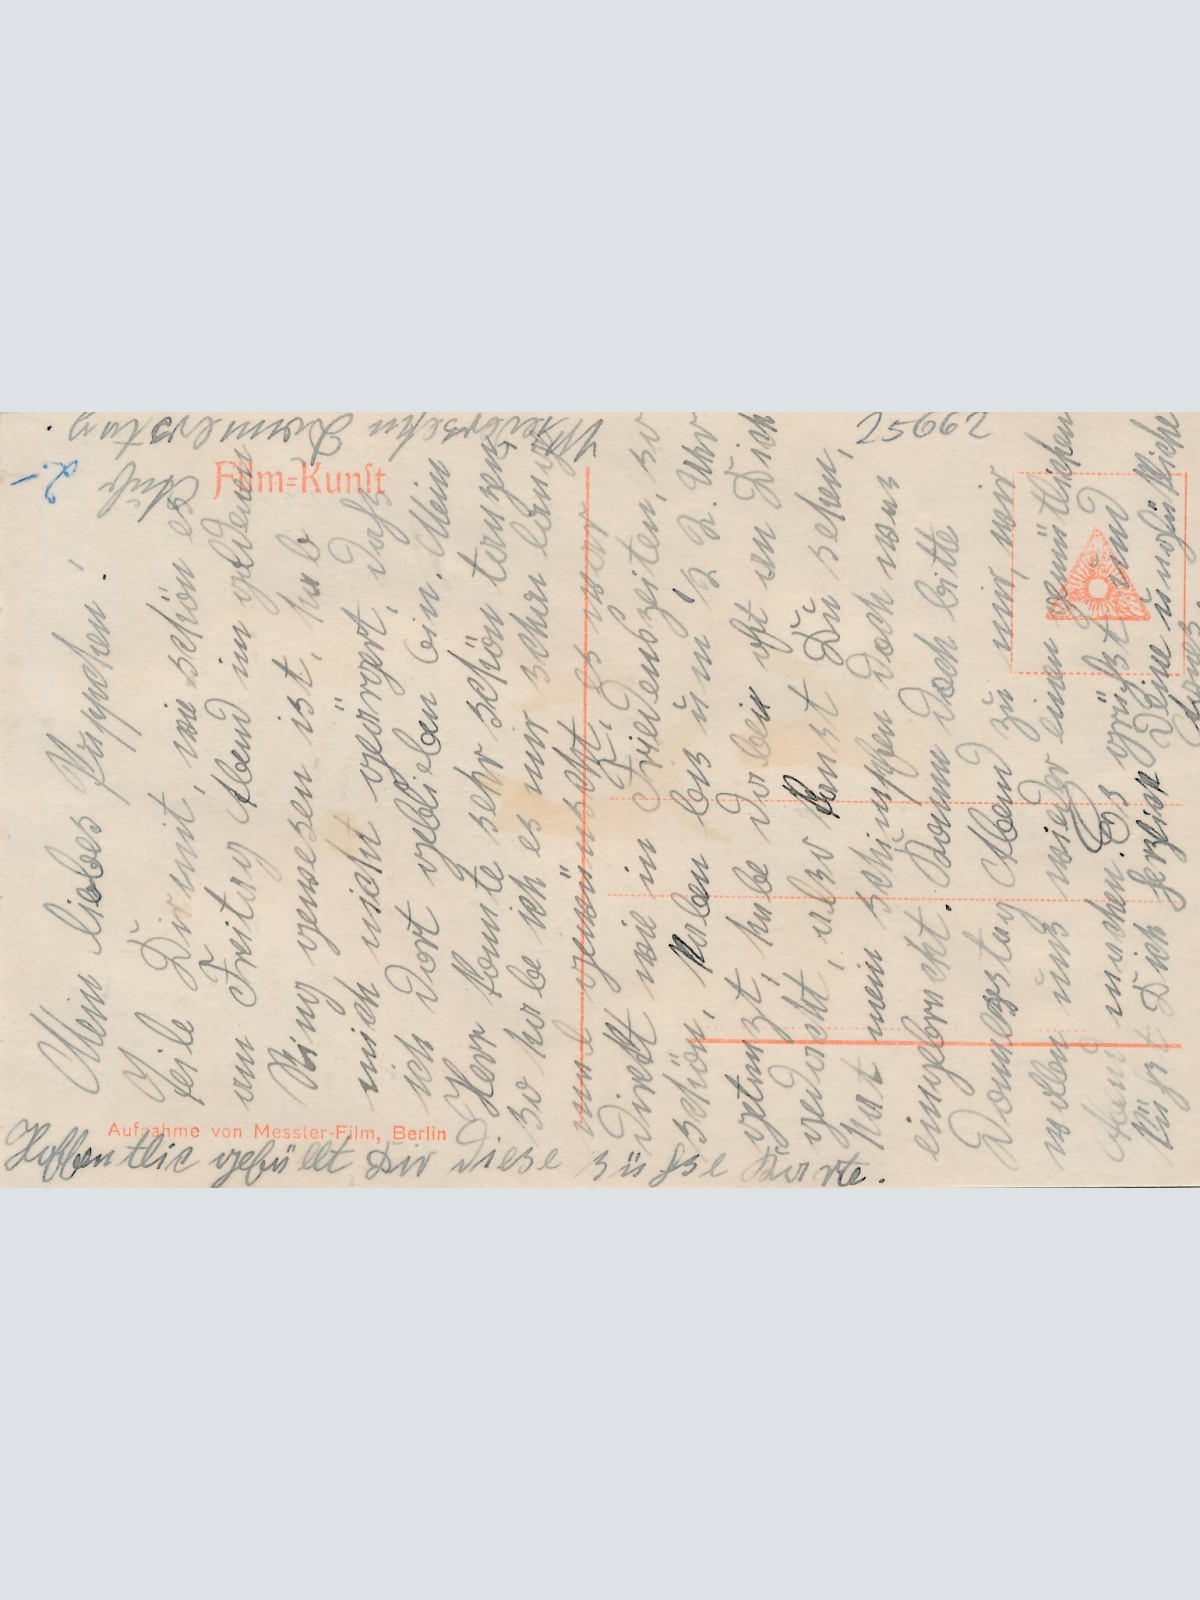 Mein liebes Puppchen!
Teile Dir mit, wie schön es
am Freitag Abend im goldenen
Ring gewesen ist, hab
mich nicht geärgert, dass
ich dort geblieben bin. Mein
Herr konnte sehr schön tanzen,
so habe ich es mir schon lange
mal gewünscht. Es war
direkt wie in Friedenszeiten, so
schön, haben bis um ½ 2 Uhr
getanzt, habe dabei oft an Dich
gedacht, also kannst Du sehen,
hat mein schimpfen doch was
eingebracht. Komm doch bitte
Donnerstag Abend zu mir, wir
wollen uns wieder einen gemütlichen
Abend machen. Es grüßt und
küsst Dich herzlich Deine unglückliche
Hoffentlic gefällt Dir diese süsse Karte.
Auf Wiedersehn Donnerstag
Film=Kunst
Aufnahme von Messter-Film, Berlin
25662
2.-